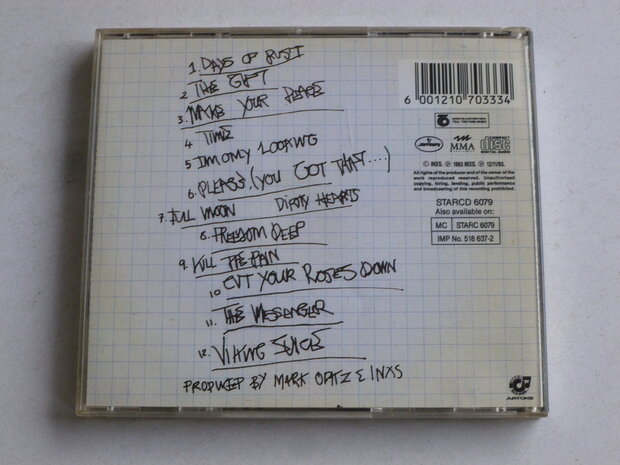 1. DAYS OF RUST
2 THE GIFT
3. MAKE YOUR PEACE
4 TIME
5 I'M ONLY LOOKING
6. PLEASE (YOU GOT THAT....)
7. FULL MOON DIRTY HEARTS
8. FREEDOM DEEP
9. KILL THE PAIN
10 CUT YOUR ROSES DOWN
11. THE MESSENGER
12. VIKING JUICE
PRODUCED BY MARK OPITZ & INXS
6 001210 703334
mercury
MMA
COMPACT
disc
DIGITAL AUDIO
© INXS. ℗ 1993 INXS. ℗ 12/11/93.
All rights of the producer and of the owner of the
work reproduced reserved. Unauthorised
copying, hiring, lending, public performance
and broadcasting of this recording prohibited.
STARCD 6079
Also available on:
MC STARC 6079
IMP No. 518 637-2
ARTONE